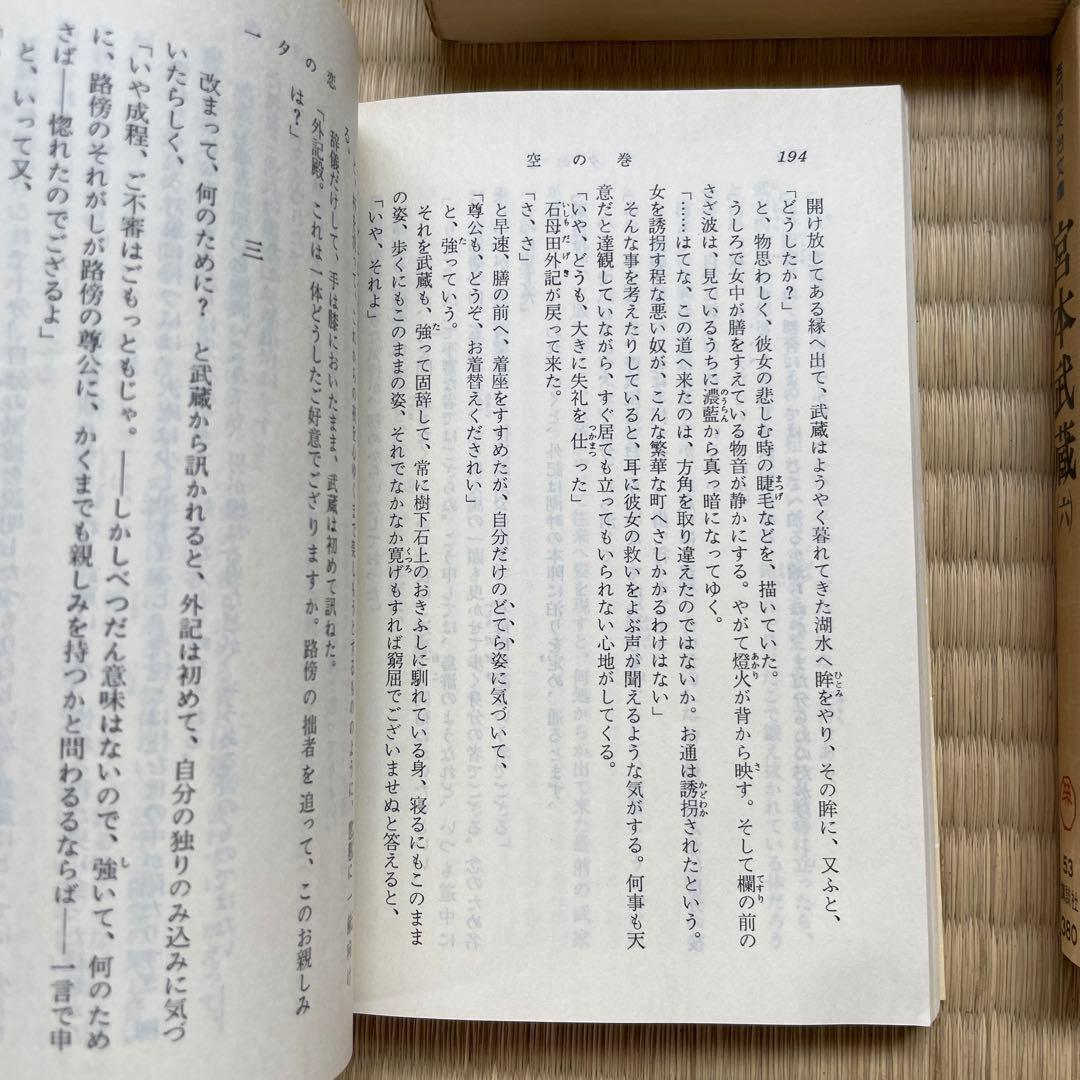 194
空の巻
開け放してある縁へ出て、武蔵はようやく暮れてきた湖水へ眸をやり、その眸に、又ふと、
「どうしたか?」
と、物思わしく、彼女の悲しむ時の睫毛などを、描いていた。
うしろで女中が膳をすえている物音が静かにする。やがて燈火が背から映す。そして欄の前の
さざ波は、見ているうちに濃藍から真っ暗になってゆく。
「……はてな、この道へ来たのは、方角を取り違えたのではないか。お通は誘拐されたという。
女を誘拐す程な悪い奴が、こんな繁華な町へさしかかるわけはない」
そんな事を考えたりしていると、耳に彼女の救いをよぶ声が聞えるような気がする。何事も天
意だと達観していながら、すぐ居ても立ってもいられない心地がしてくる。
「いや、どうも、大きに失礼を仕った」
石母田外記が戻って来た。
「さ、さ」
と早速、膳の前へ、着座をすすめたが、自分だけのどてら姿に気づいて、
「尊公も、どうぞ、お着替えくだされい」
と、強っていう。
それを武蔵も、強って固辞して、常に樹下石上のおきふしに馴れている身、寝るにもこのまま
の姿、歩くにもこのままの姿、それでなかなか寛げもすれば窮屈でございませぬと答えると、
「いや、それよ」
一夕の恋
辞儀だけして、手は膝においたまま、武蔵は初めて訊ねた。
「外記殿。これは一体どうしたご好意でござりますか。路傍の拙者を追って、このお親しみ
は?」
三
改まって、何のために? と武蔵から訊かれると、外記は初めて、自分の独りのみ込みに気づ
いたらしく、
「いや成程、ご不審はごもっともじゃ。――しかしべつだん意味はないので、強いて、何のため
に、路傍のそれがしが路傍の尊公に、かくまでも親しみを持つかと問わるるならば――一言で申
さば――惚れたのでござるよ」
と、いって又、
宮本武蔵 六
53
380